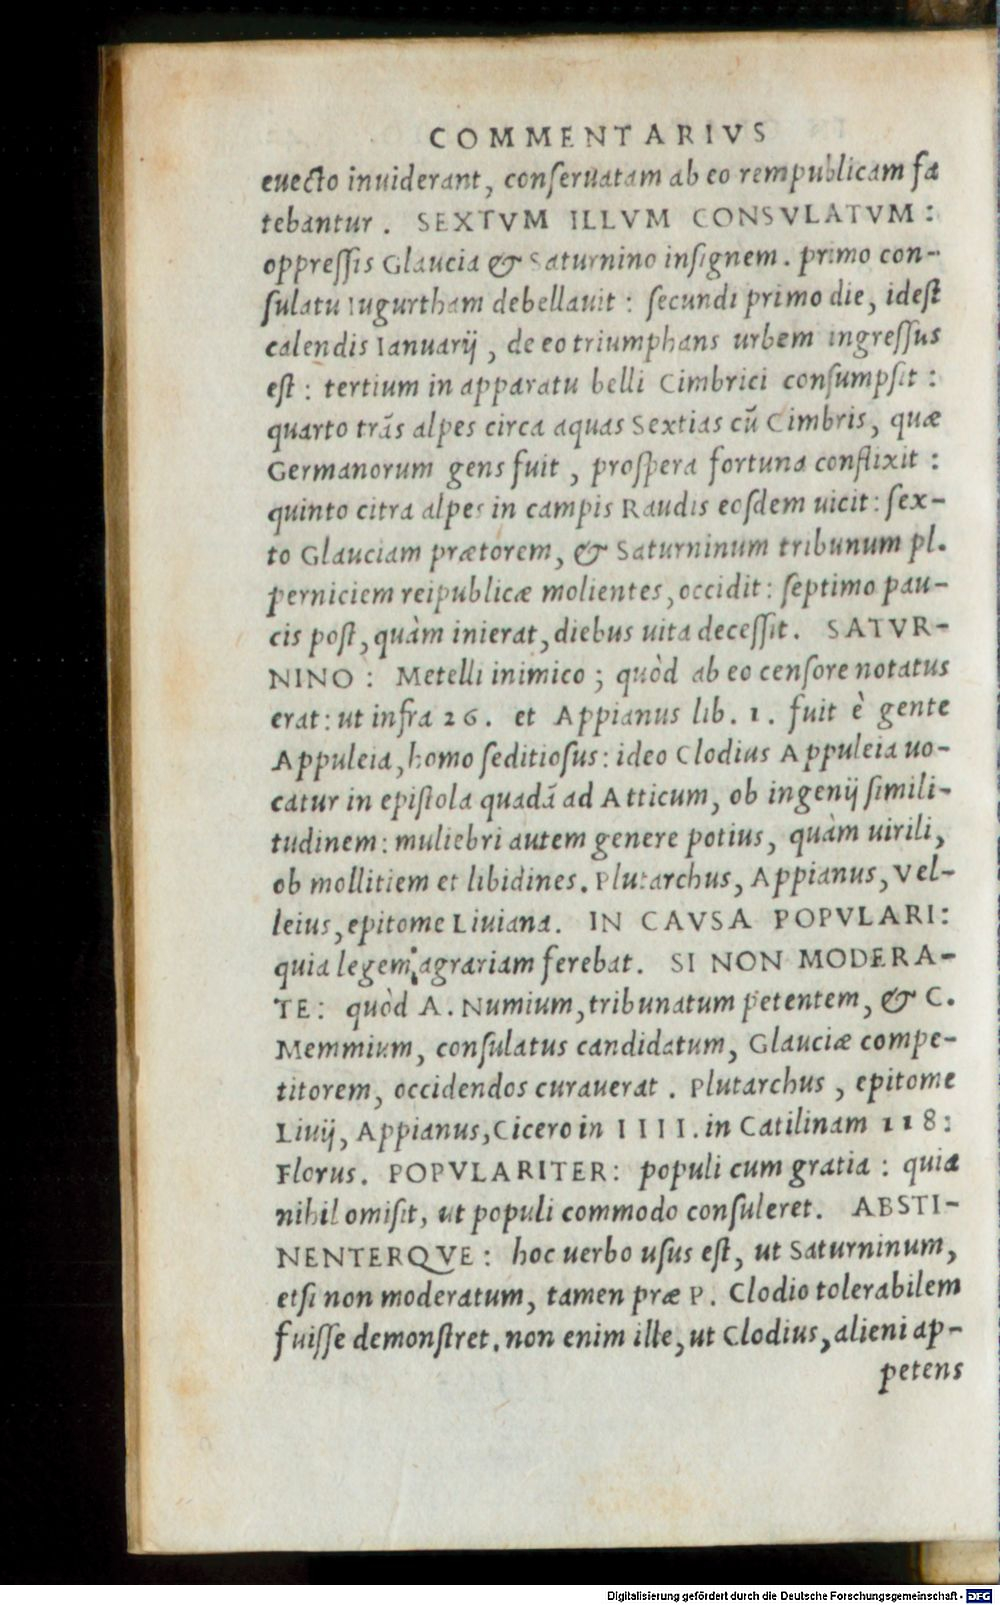 COMMENTARIVS
euecto inuiderant, conseruatam ab eo rempublicam fa
tebantur. SEXTVM ILLVM CONSVLATVM:
oppressis Glaucia & Saturnino insignem. primo con-
sulatu Iugurtham debellauit: secundi primo die, idest
calendis Ianuarij, de eo triumphans urbem ingressus
est: tertium in apparatu belli Cimbrici consumpsit:
quarto trãs alpes circa aquas Sextias cũ Cimbris, quæ
Germanorum gens fuit, prospera fortuna conflixit:
quinto citra alpes in campis Raudis eosdem uicit: sex-
to Glauciam prætorem, & Saturninum tribunum pl.
perniciem reipublicæ molientes, occidit: septimo pau-
cis post, quàm inierat, diebus uita decessit. SATVR-
NINO: Metelli inimico; quòd ab eo censore notatus
erat: ut infra 26. et Appianus lib. 1. fuit è gente
Appuleia, homo seditiosus: ideo Clodius Appuleia uo-
catur in epistola quadã ad Atticum, ob ingenij simili-
tudinem: muliebri autem genere potius, quàm uirili,
ob mollitiem et libidines. Plutarchus, Appianus, Vel-
leius, epitome Liuiana. IN CAVSA POPVLARI:
quia legem agrariam ferebat. SI NON MODERA-
TE: quòd A. Numium, tribunatum petentem, & C.
Memmium, consulatus candidatum, Glauciæ compe-
titorem, occidendos curauerat. Plutarchus, epitome
Liuij, Appianus, Cicero in IIII. in Catilinam 118:
Florus. POPVLARITER: populi cum gratia: quia
nihil omisit, ut populi commodo consuleret. ABSTI-
NENTERQVE: hoc uerbo usus est, ut Saturninum,
etsi non moderatum, tamen præ P. Clodio tolerabilem
fuisse demonstret. non enim ille, ut Clodius, alieni ap-
petens
Digitalisierung gefördert durch die Deutsche Forschungsgemeinschaft - DFG